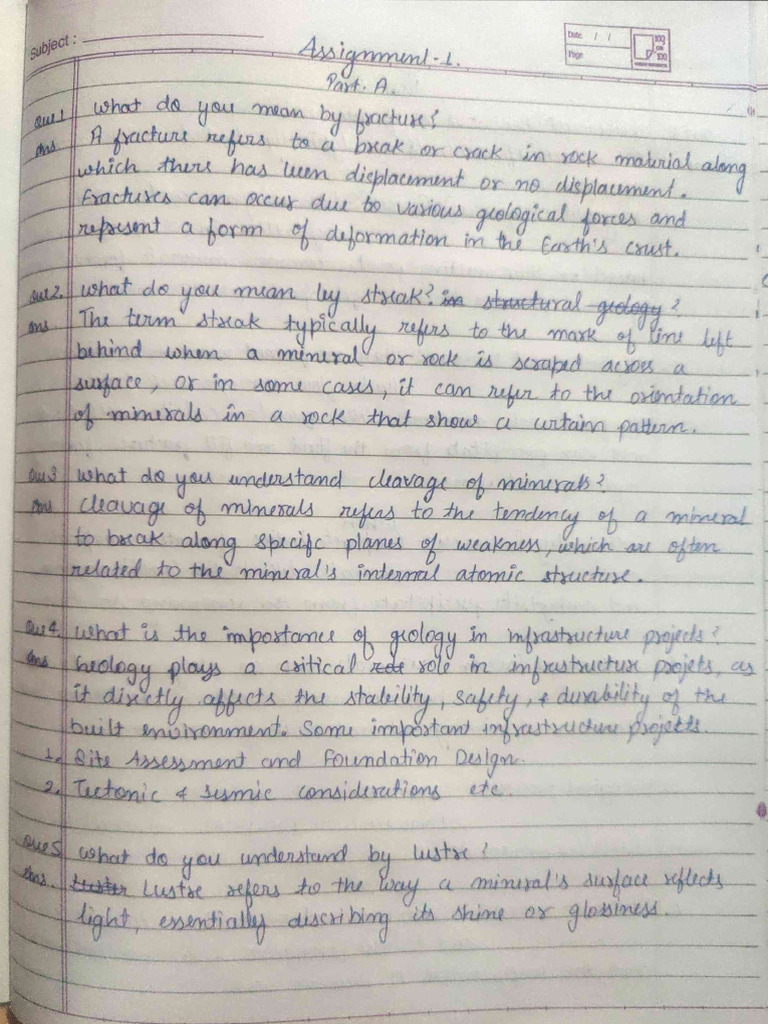 Subject :
Date / /
Page
Assignment-1.
Part. A.
Que1 What do you mean by fracture?
Ans A fracture refers to a break or crack in rock material along
which there has been displacement or no displacement.
Fractures can occur due to various geological forces and
represent a form of deformation in the Earth's crust.
Que2. What do you mean by streak? in structural geology?
Ans The term streak typically refers to the mark of line left
behind when a mineral or rock is scraped across a
surface, or in some cases, it can refer to the orientation
of minerals in a rock that show a certain pattern.
Que3 What do you understand cleavage of minerals?
Ans Cleavage of minerals refers to the tendency of a mineral
to break along specific planes of weakness, which are often
related to the mineral's internal atomic structure.
Que4. What is the importance of geology in infrastructure projects?
Ans Geology plays a critical role role in infrastructure projets, as
it directly affects the stability, safety, & durability of the
built environment. Some important infrastructure projects.
1. Site Assessment and Foundation Design.
2. Tectonic & sesmic considerations etc.
Que5 What do you understand by lustre?
Ans. Luster Lustre refers to the way a mineral's surface reflects
light, essentially discribing its shine or glossiness.